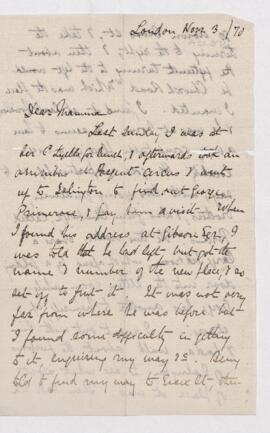 London Nov 3/70
Dear Mamma
Last Sunday I was at
Sir C Lyells for lunch, & afterwards took an
omnibus at Regent Circus & went
up to Islington to find out George
Primrose, & pay him a visit. When
I found his address at Gibson Sqr, I
was told that he had left but got the
name & number of the new place, & so
set off to find it. It was not very
far from where he was before but
I found some difficulty in getting
to it, enquiring my way &c. Being
told to find my way to St then